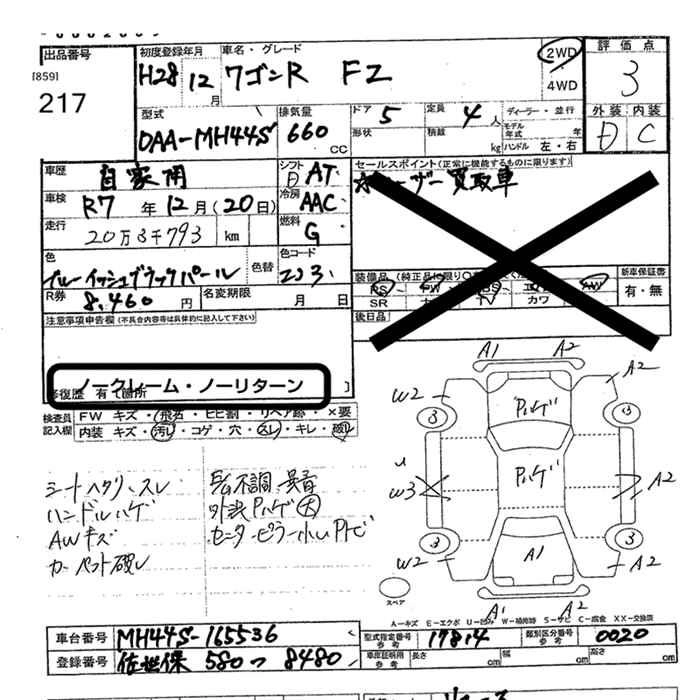 出品番号
[859]
217
初度登録年月 車名・グレード
H28 12月 ワゴンR FZ
2WD
4WD
評価点
3
外装 内装
D C
型式 排気量 ドア 定員 ディーラー・並行
DAA-MH44S 660 CC 5 4人
形状 積載 kg モデル年式 年
ハンドル 左・右
車歴 自家用
シフト AT
車検 R7年12月(20日)
冷房 AAC
走行 20万3千793 km
燃料 G
色 ブルーイッシュブラックパール 色替
色コード ZJ3
R券 8,460円 名変期限 月 日
セールスポイント(正常に機能するものに限ります)
買取車
装備品
新車保証書
有・無
PS
SR TV カワ AW
後日品
注意事項申告欄(不具合内容等は具体的に記入して下さい)
ノークレーム・ノーリターン
修復歴 有 箇所
検査員記入欄
FW キズ・飛石・ヒビ割・リペア跡・×要
内装 キズ・汚レ・コゲ・穴・スレ・キレ・破レ
シートヘタリ、スレ
ハンドルハゲ
AWキズ
カーペット破レ
不調 異音
外装Pハゲ大
A1 A2
W2 A2
Pハゲ
3 3
Pハゲ
W3 A2
3 3
W2 A1 A2
スペア
A1 A2
A-キズ E-エクボ U-凹み W-補修跡 S-サビ C-腐食 XX-交換済
車台番号 MH44S-165536
型式指定番号 参考 17814
類別区分番号 参考 0020
登録番号 佐世保 580 つ 8480
車庫証明用 参考 長さ cm 幅 cm 高さ cm